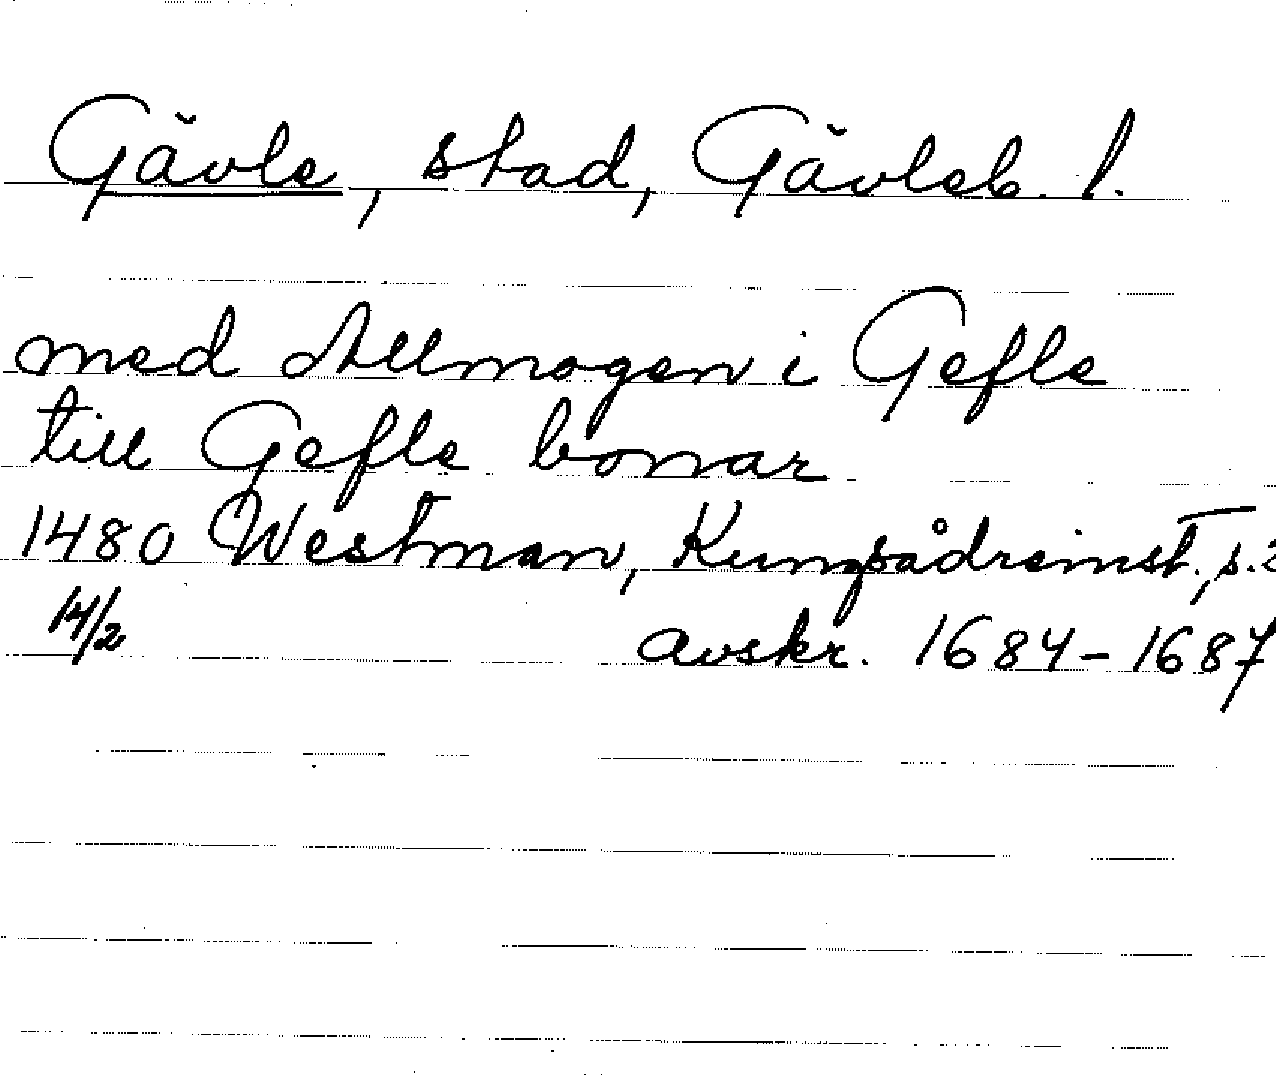 Gävle, stad, Gävleb. l.
med Allmogen i Gefle
till Gefle bonar
1480 Westman, Kungsådreinst., s. 2
14/2 avskr. 1684-1687